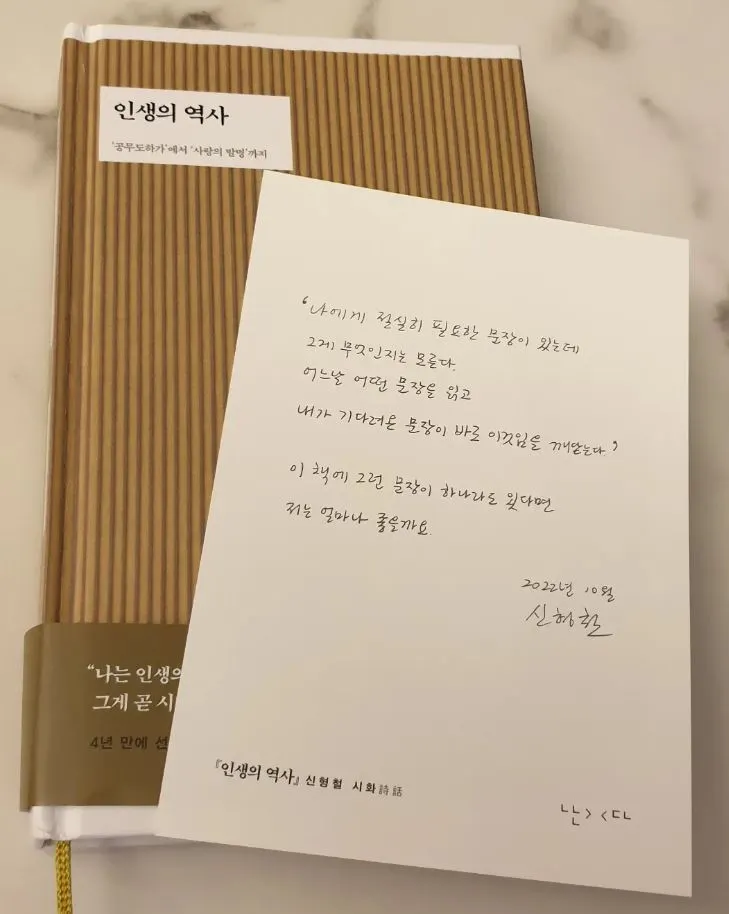 인생의 역사
'공무도하가'에서 '사랑의 발명'까지
'나에게 절실히 필요한 문장이 있는데
그게 무엇인지는 모른다.
어느날 어떤 문장을 읽고
내가 기다려온 문장이 바로 이것임을 깨닫는다.'
이 책에 그런 문장이 하나라도 있다면
저는 얼마나 좋을까요.
2022년 10월
신형철
"나는 인생의
그게 곧 시
4년 만에 선
『인생의 역사』 신형철 시화詩話
난다